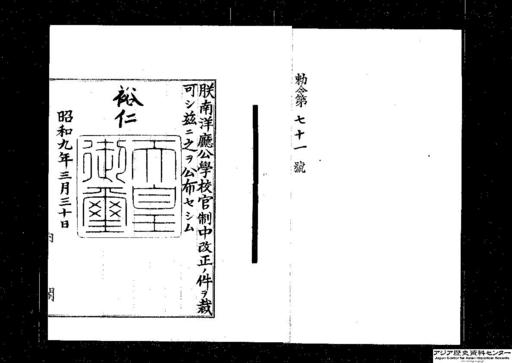 勅令第七十一號
朕南洋廳公學校官制中改正ノ件ヲ裁
可シ茲ニ之ヲ公布セシム
裕仁
天皇
御璽
昭和九年三月三十日
内閣
アジア歴史資料センター
Japan Center for Asian Historical Records